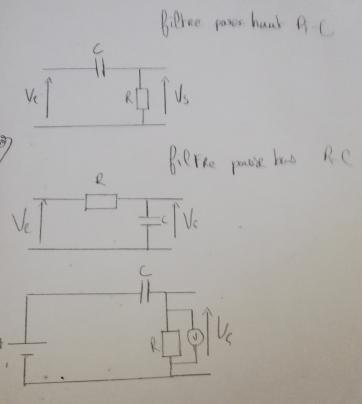 filtre passe haut R-C
C
Ve
R
Vs
filtre passe bas R C
R
Ve
C
Vs
C
R
V
Vs